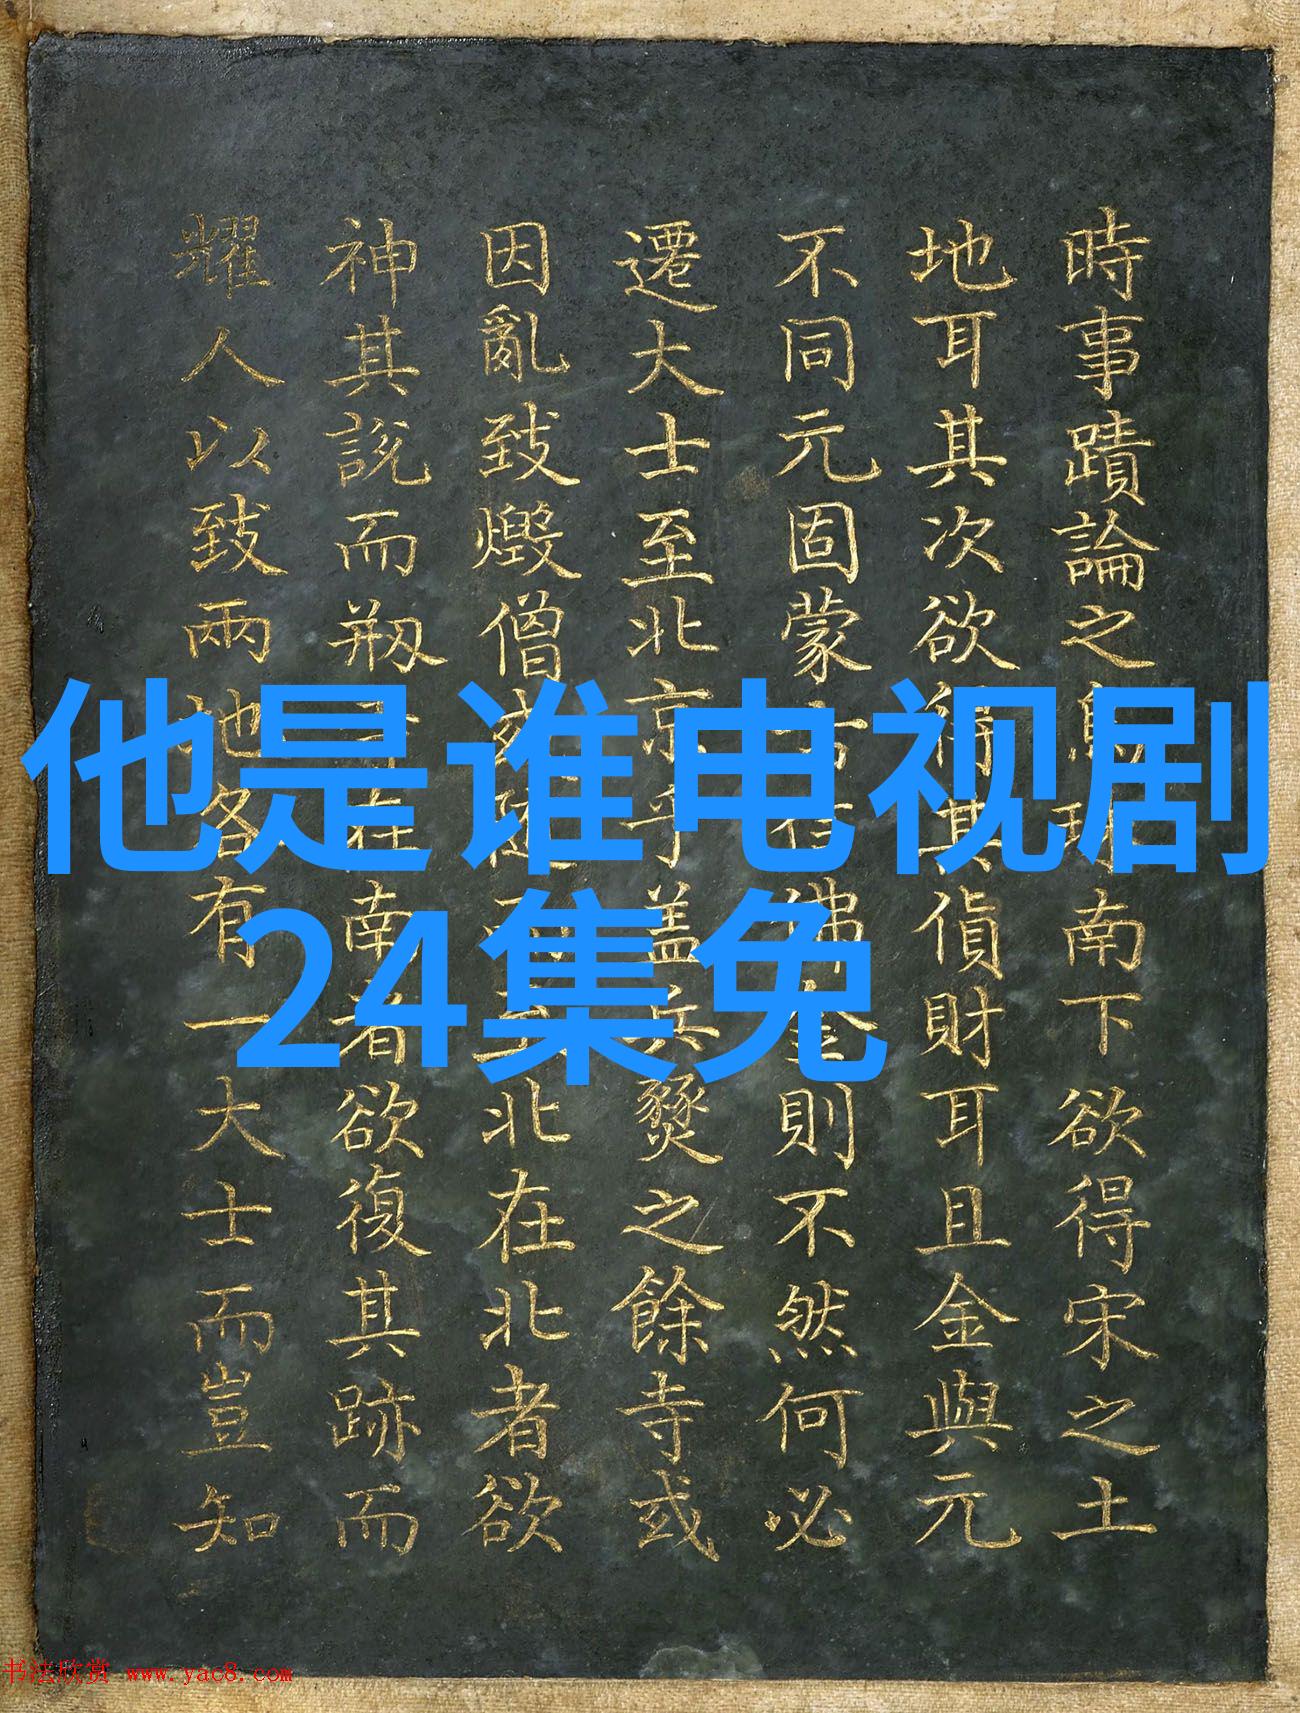 時事蹟論之烏珠南下欲得宋之土
地耳其次欲得其貨財耳且金與元
不同元固蒙古信佛金則不然何必
遷大士至北京乎蓋兵燹之餘寺或
因亂致燬僧北在北者欲
神其說而剏在南者欲復其跡而
耀人以致兩地各有一大士而豈知
他是谁电视剧
24集免
书法欣赏 www.yac8.com